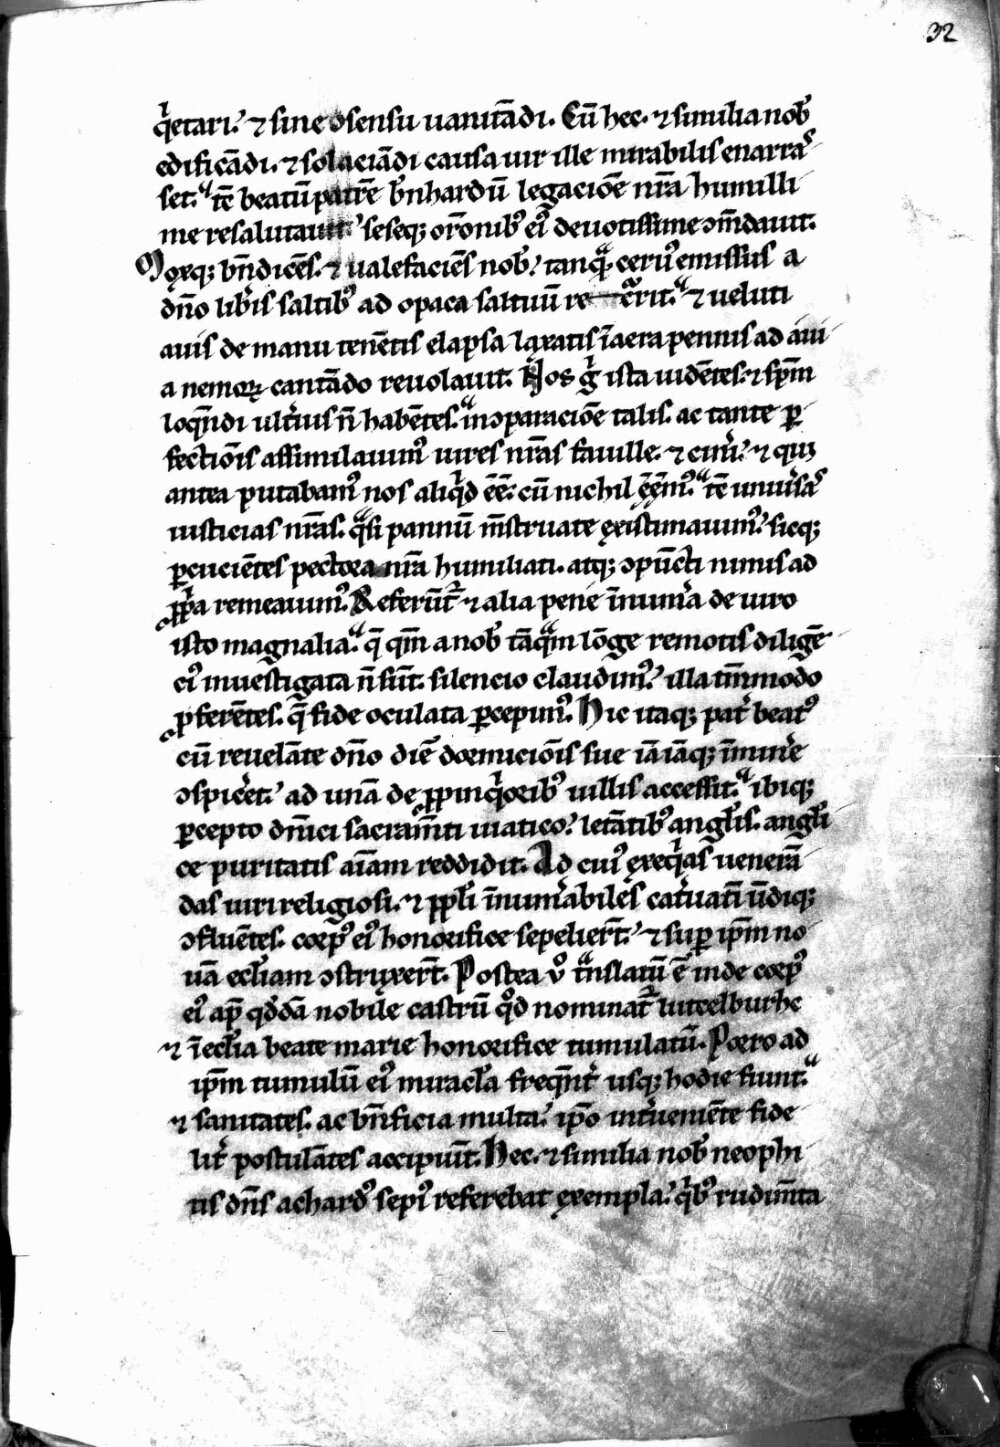 32
q̇etari. ⁊ sine ↄsensu uanitādi. Cū hec. ⁊ similia nob̉
edificādi. ⁊ solaciādi causa uir ille mirabilis enarraſ
set. tē beatū patrē b̄nhardū legaciōe nr̄a humilli
me resalutauit. seseq; or̄onib⁹ ei⁹ deuotissime ↄm̄dauit.
Moxq; bn̄dicēs. ⁊ ualefaciēs nob̉. tanqᵃ̄ ceru⁹ emissus a
dn̄o lib̉is saltib⁹ ad opaca saltuū re uᵃerit. ⁊ ueluti
auis de manu tenētis elapsa laxatis ī aera pennis ad āui
a nemoꝝ cantādo reuolauit. Nos g̊ ista uidētes. ⁊ sp̄m
loqn̄di ult̉ius n̄ habētes. in ↄparaciōe talis. ac tante ꝑ
fectiōis assimilauim⁹ uires nr̄as fauille. ⁊ cin̉i. ⁊ qui
antea putabam⁹ nos aliq̇d ēē. cū nichil eēm⁹. tē uniủsaſ
iusticias nr̄as. qᵃsi pannū mn̄struate existimauim⁹. sicq;
ꝑcucientes pectora nr̄a humiliati. atq; ↄpūcti nimis ad
ꝓp̉a remeauim⁹. Referūt̉ ⁊ alia pene īnum̉a de uiro
isto magnalia. q̄ qm̄ a nob̉ tāqᵃm lōge remotis diligē
ci⁹ inuestigata n̄ sūt. silencio claudim⁹. illa tm̄modo
ꝓferētes. q̄ fide oculata ꝑcepim⁹. Hic itaq; pat̉ beat⁹
cū reuelāte dn̄o diē dormiciōis sue iā iāq; īmin̉e
ↄspic̉et. ad unā de ꝓpinq̇orib⁹ uillis accessit. ibiq;
ꝑcepto dn̄ici sacram̄ti uiatico. letātib⁹ angl̉is. angl̉i
ce puritatis aīam reddidit. Ad cui⁹ exeq̇as uenerā
das uiri religiosi. ⁊ ppl̉i īnum̉abiles cat̉uatī ūdiq;
ↄfluētes. corp⁹ ei⁹ honorifice sepelier̄t. ⁊ sup ip̄m no
uā eccl̉iam ↄstruxer̄t. Postea v̊ tᵃnslatū ē inde corp⁹
ei⁹ ap̄ qd̄dā nobile castrū qd̊ nominat̉ lutcelburhc
⁊ ī eccl̉ia beate marie honorifice tumulatū. Porro ad
ip̄m tumulū ei⁹ miracl̉a freqn̄t̉ usq; hodie fiunt.
⁊ sanitates. ac bn̄ficia multa. ip̄o int̉ueniēte fide
lit̉ postulātes accipiūt. Hec. ⁊ similia nob̉ neophi
tis dn̄s achard⁹ sepi⁹ referebat exempla. q̇b⁹ rudim̄ta